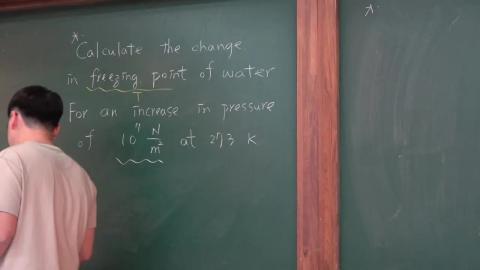 * Calculate the change
in freezing point of water
T
For an increase in pressure
of 10⁷ N/m² at 273 K
*